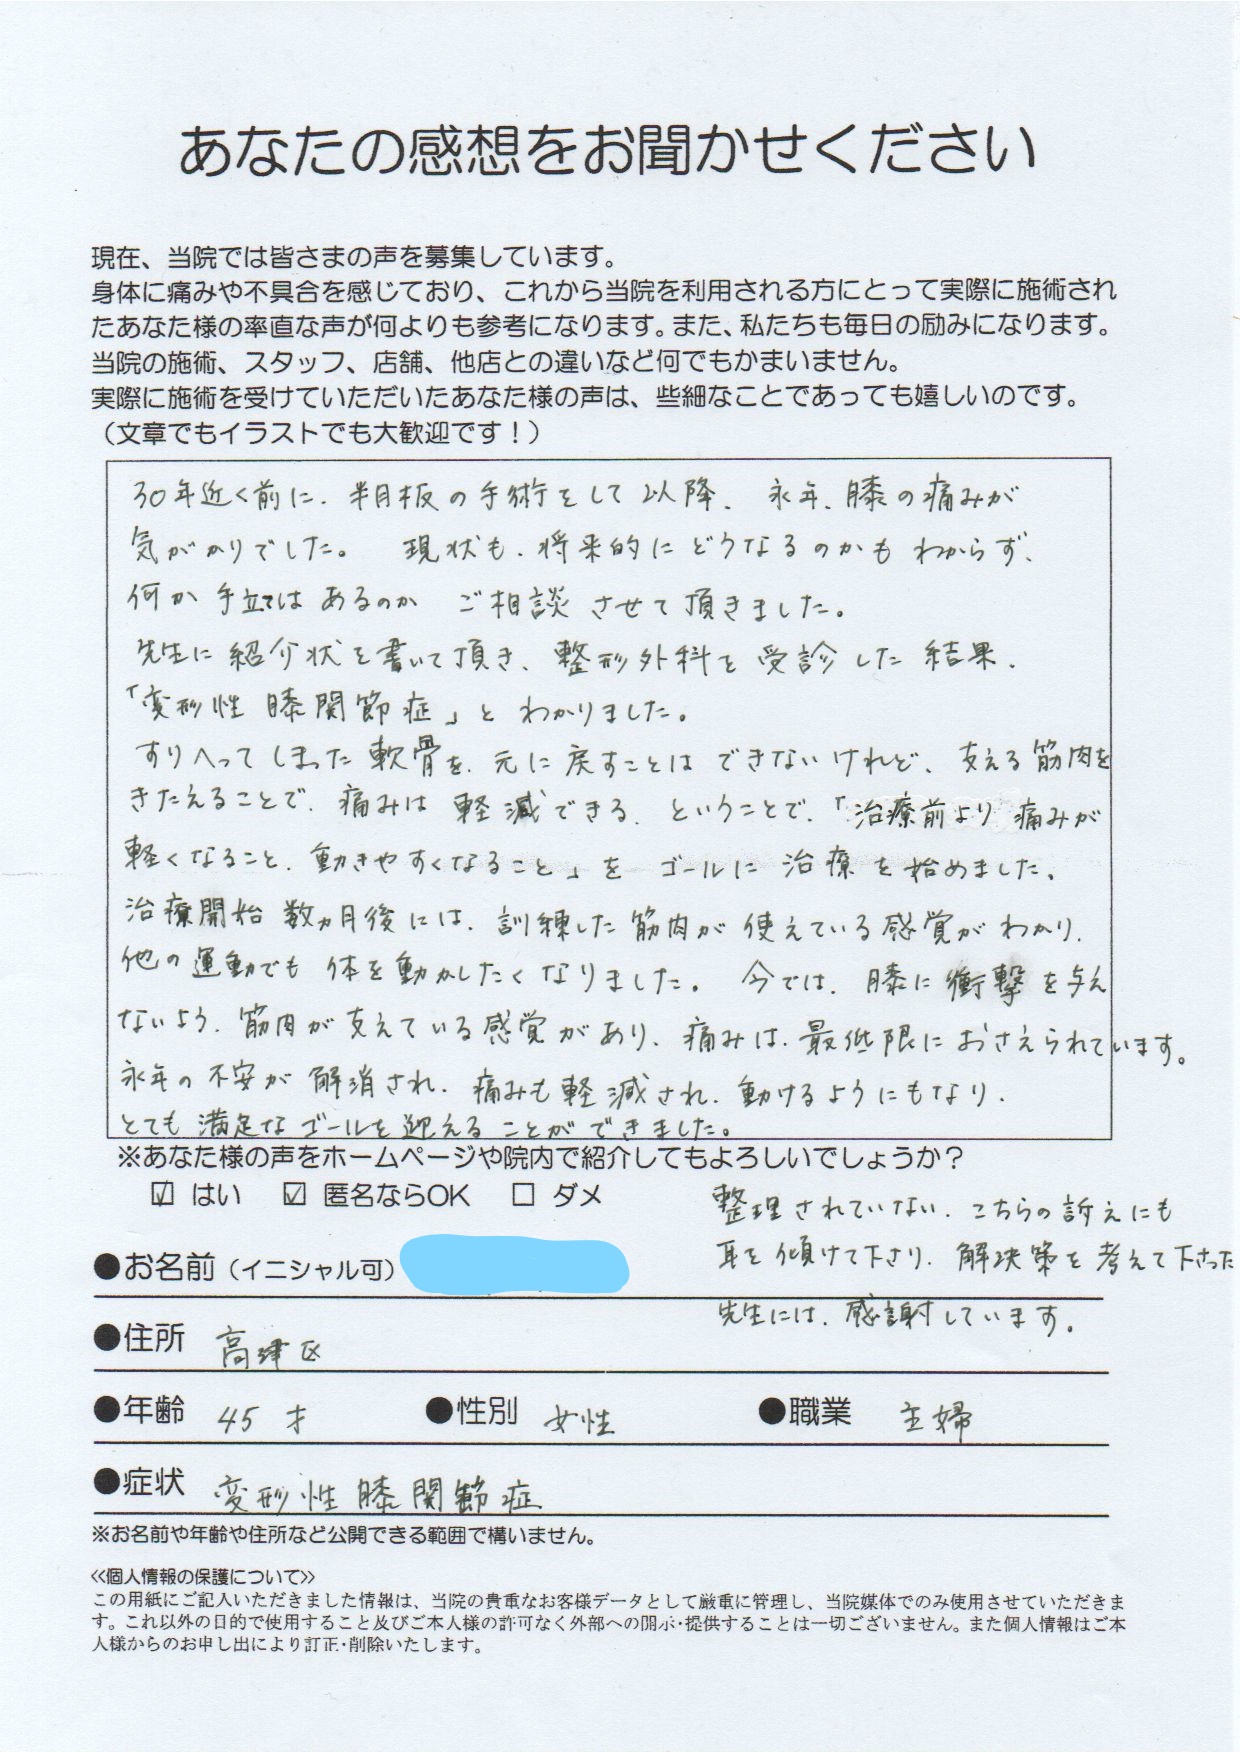 あなたの感想をお聞かせください
現在、当院では皆さまの声を募集しています。
身体に痛みや不具合を感じており、これから当院を利用される方にとって実際に施術され
たあなた様の率直な声が何よりも参考になります。また、私たちも毎日の励みになります。
当院の施術、スタッフ、店舗、他店との違いなど何でもかまいません。
実際に施術を受けていただいたあなた様の声は、些細なことであっても嬉しいのです。
（文章でもイラストでも大歓迎です！）
30年近く前に、半月板の手術をして以降、永年、膝の痛みが
気がかりでした。 現状も、将来的にどうなるのかもわからず、
何か手立てはあるのか ご相談させて頂きました。
先生に紹介状を書いて頂き、整形外科を受診した結果、
「変形性膝関節症」とわかりました。
すりへってしまった軟骨を、元に戻すことはできないけれど、支える筋肉を
きたえることで、痛みは軽減できる、ということで、「治療前より痛みが
軽くなること、動きやすくなること」をゴールに治療を始めました。
治療開始数ヵ月後には、訓練した筋肉が使えている感覚がわかり、
他の運動でも体を動かしたくなりました。 今では、膝に衝撃を与え
ないよう、筋肉が支えている感覚があり、痛みは、最低限におさえられています。
永年の不安が解消され、痛みも軽減され、動けるようにもなり、
とても満足なゴールを迎えることができました。
※あなた様の声をホームページや院内で紹介してもよろしいでしょうか？
☑ はい ☑ 匿名ならOK ☐ ダメ
整理されていない、こちらの訴えにも
耳を傾けて下さり、解決策を考えて下さった
先生には、感謝しています。
●お名前（イニシャル可）
●住所 高津区
●年齢 45才 ●性別 女性 ●職業 主婦
●症状 変形性膝関節症
※お名前や年齢や住所など公開できる範囲で構いません。
≪個人情報の保護について≫
この用紙にご記入いただきました情報は、当院の貴重なお客様データとして厳重に管理し、当院媒体でのみ使用させていただきま
す。これ以外の目的で使用すること及びご本人様の許可なく外部への開示・提供することは一切ございません。また個人情報はご本
人様からのお申し出により訂正・削除いたします。